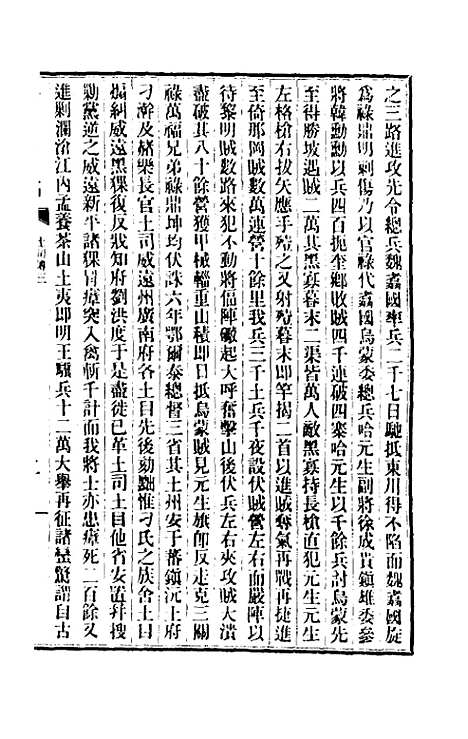 之三路進攻先令總兵魏翥國率兵二千七日馳抵東川得不陷而魏翥國旋
爲祿鼎明刺傷乃以官祿代翥國烏蒙委總兵哈元生副將徐成貴鎮雄委參
將韓勳勳以兵四百扼奎鄉收賊四千連破四寨哈元生以千餘兵討烏蒙先
至得勝坡遇賊二萬其黑寡暮末二渠皆萬人敵黑寡持長槍直犯元生元生
左格槍右拔矢應手殪之又射殪暮末即竿揭二首以進賊奪氣再戰再捷進
至倚那岡賊數萬連營十餘里我兵三千土兵千夜設伏賊營左右而嚴陣以
待黎明賊數路來犯不動將偪陣礮起大呼奮擊山後伏兵左右夾攻賊大潰
盡破其八十餘營獲甲械輜重山積即日抵烏蒙賊見元生旗卽反走克三關
祿萬福兄弟祿鼎坤均伏誅六年鄂爾泰總督三省其土州安于蕃鎮沅土府
刁瀚及赭樂長官土司威遠州廣南府各土目先後劾黜惟刁氏之族舍土目
煽糾威遠黑猓復反戕知府劉洪度于是盡徙已革土司土目他省安置幷搜
勦黨逆之威遠新平諸猓冒瘴突入禽斬千計而我將士亦患瘴死二百餘又
進剿瀾滄江內孟養茶山土夷即明王驥兵十二萬大舉再征諸蠻驚謂自古
土司傳三